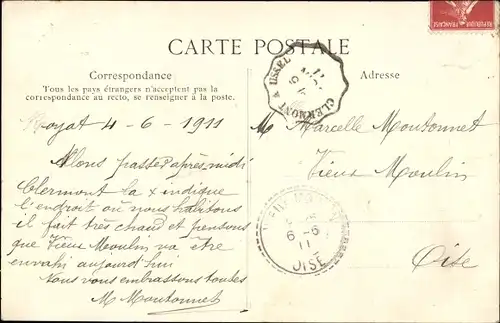 CARTE POSTALE
Correspondance
Tous les pays étrangers n'acceptent pas la
correspondance au recto, se renseigner à la poste.
Adresse
CLERMONT A USSEL
Royat 4-6-1911
Allons passer après-midi
Clermont la x indique
l'endroit où nous habitons
il fait très chaud et pensons
que Vieux Moulin va être
envahi aujourd'hui
Nous vous embrassons toutes
M Moutonnet
M Marcelle Moutonnet
Vieux Moulin
Oise
6-6
11
OISE